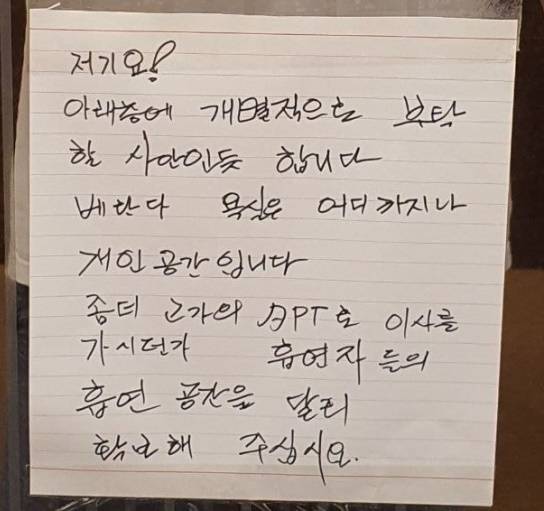 저기요!
아래층에 개별적으로 부탁
할 사안인듯 합니다
베란다 욕실은 어디까지나
개인공간입니다
좀더 고가의 APT로 이사를
가시던가 흡연자들의
흡연 공간을 멀리
확보해 주십시요.